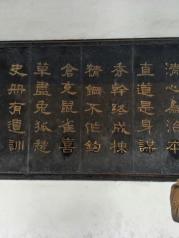 清心為治本
直道是身謀
秀幹終成棟
精鋼不作鈎
倉充鼠雀喜
草盡兔狐愁
史册有遺訓